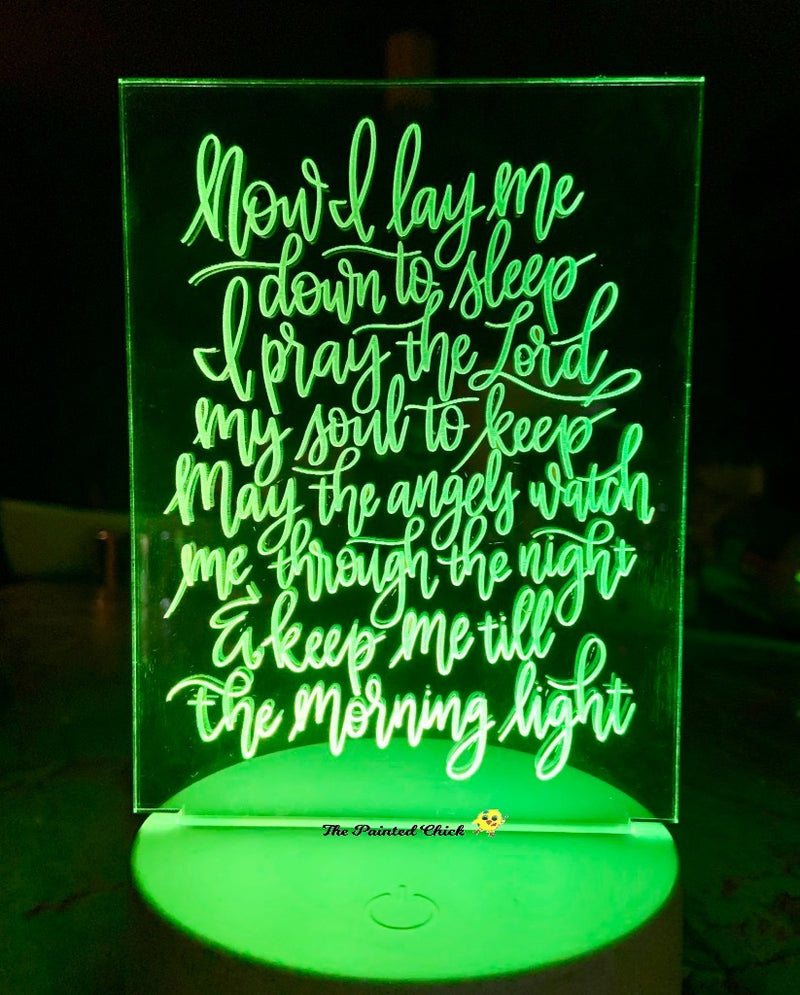 Now I lay me
down to sleep
I pray the Lord
my soul to keep
May the angels watch
me through the night
& keep me till
the morning light
The Painted Chick